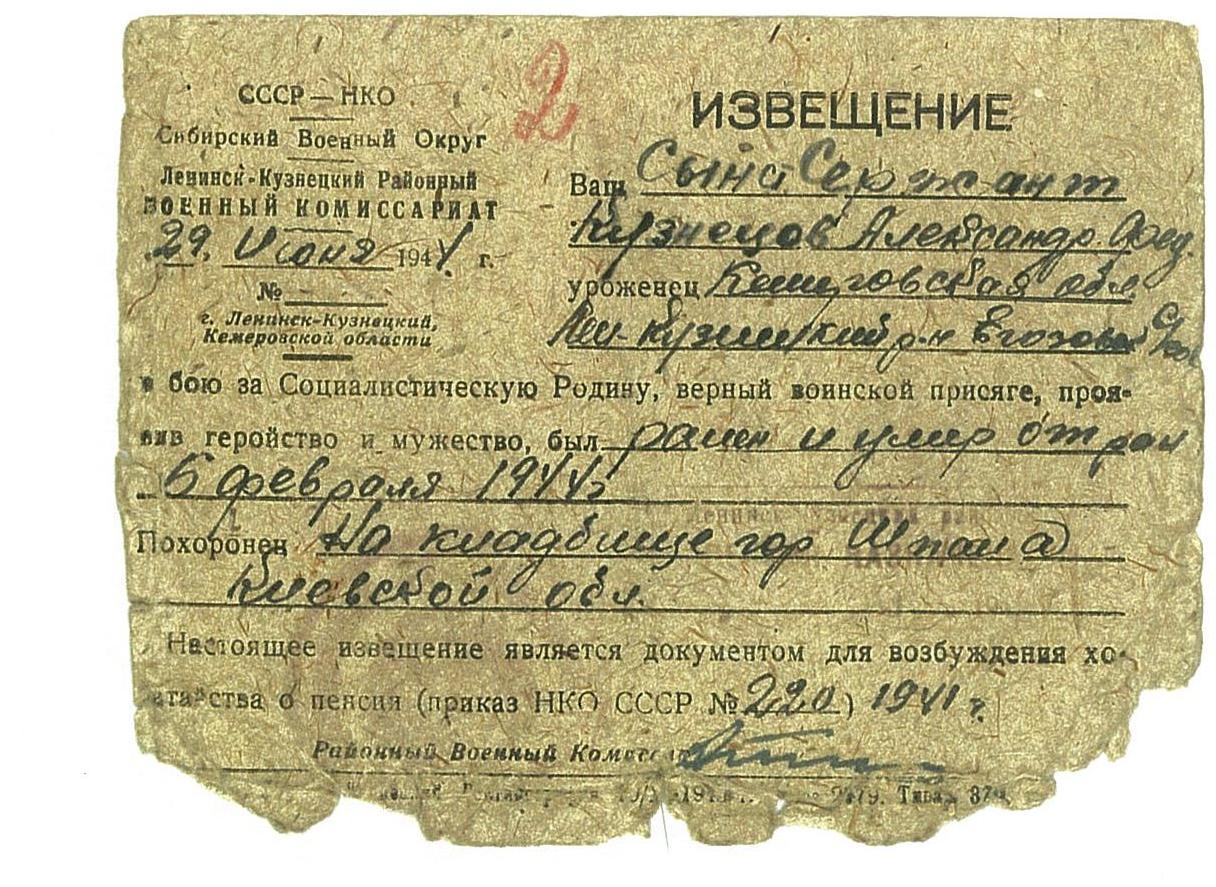 СССР — НКО
Сибирский Военный Округ
Ленинск-Кузнецкий Районный
ВОЕННЫЙ КОМИССАРИАТ
29. Июня 1944 г.
№
г. Ленинск-Кузнецкий,
Кемеровской области
2
ИЗВЕЩЕНИЕ
Ваш Сына Сержант
Кузнецов Александр
уроженец Кемеровская обл
р-н
в бою за Социалистическую Родину, верный воинской присяге, проя-
вив геройство и мужество, был ранен и умер от ран
6 февраля 1944 г
Похоронен На кладбище гор Шпола
Киевской обл.
Настоящее извещение является документом для возбуждения хо-
датайства о пенсия (приказ НКО СССР № 220) 1941 г.
Районный Военный Комиссар